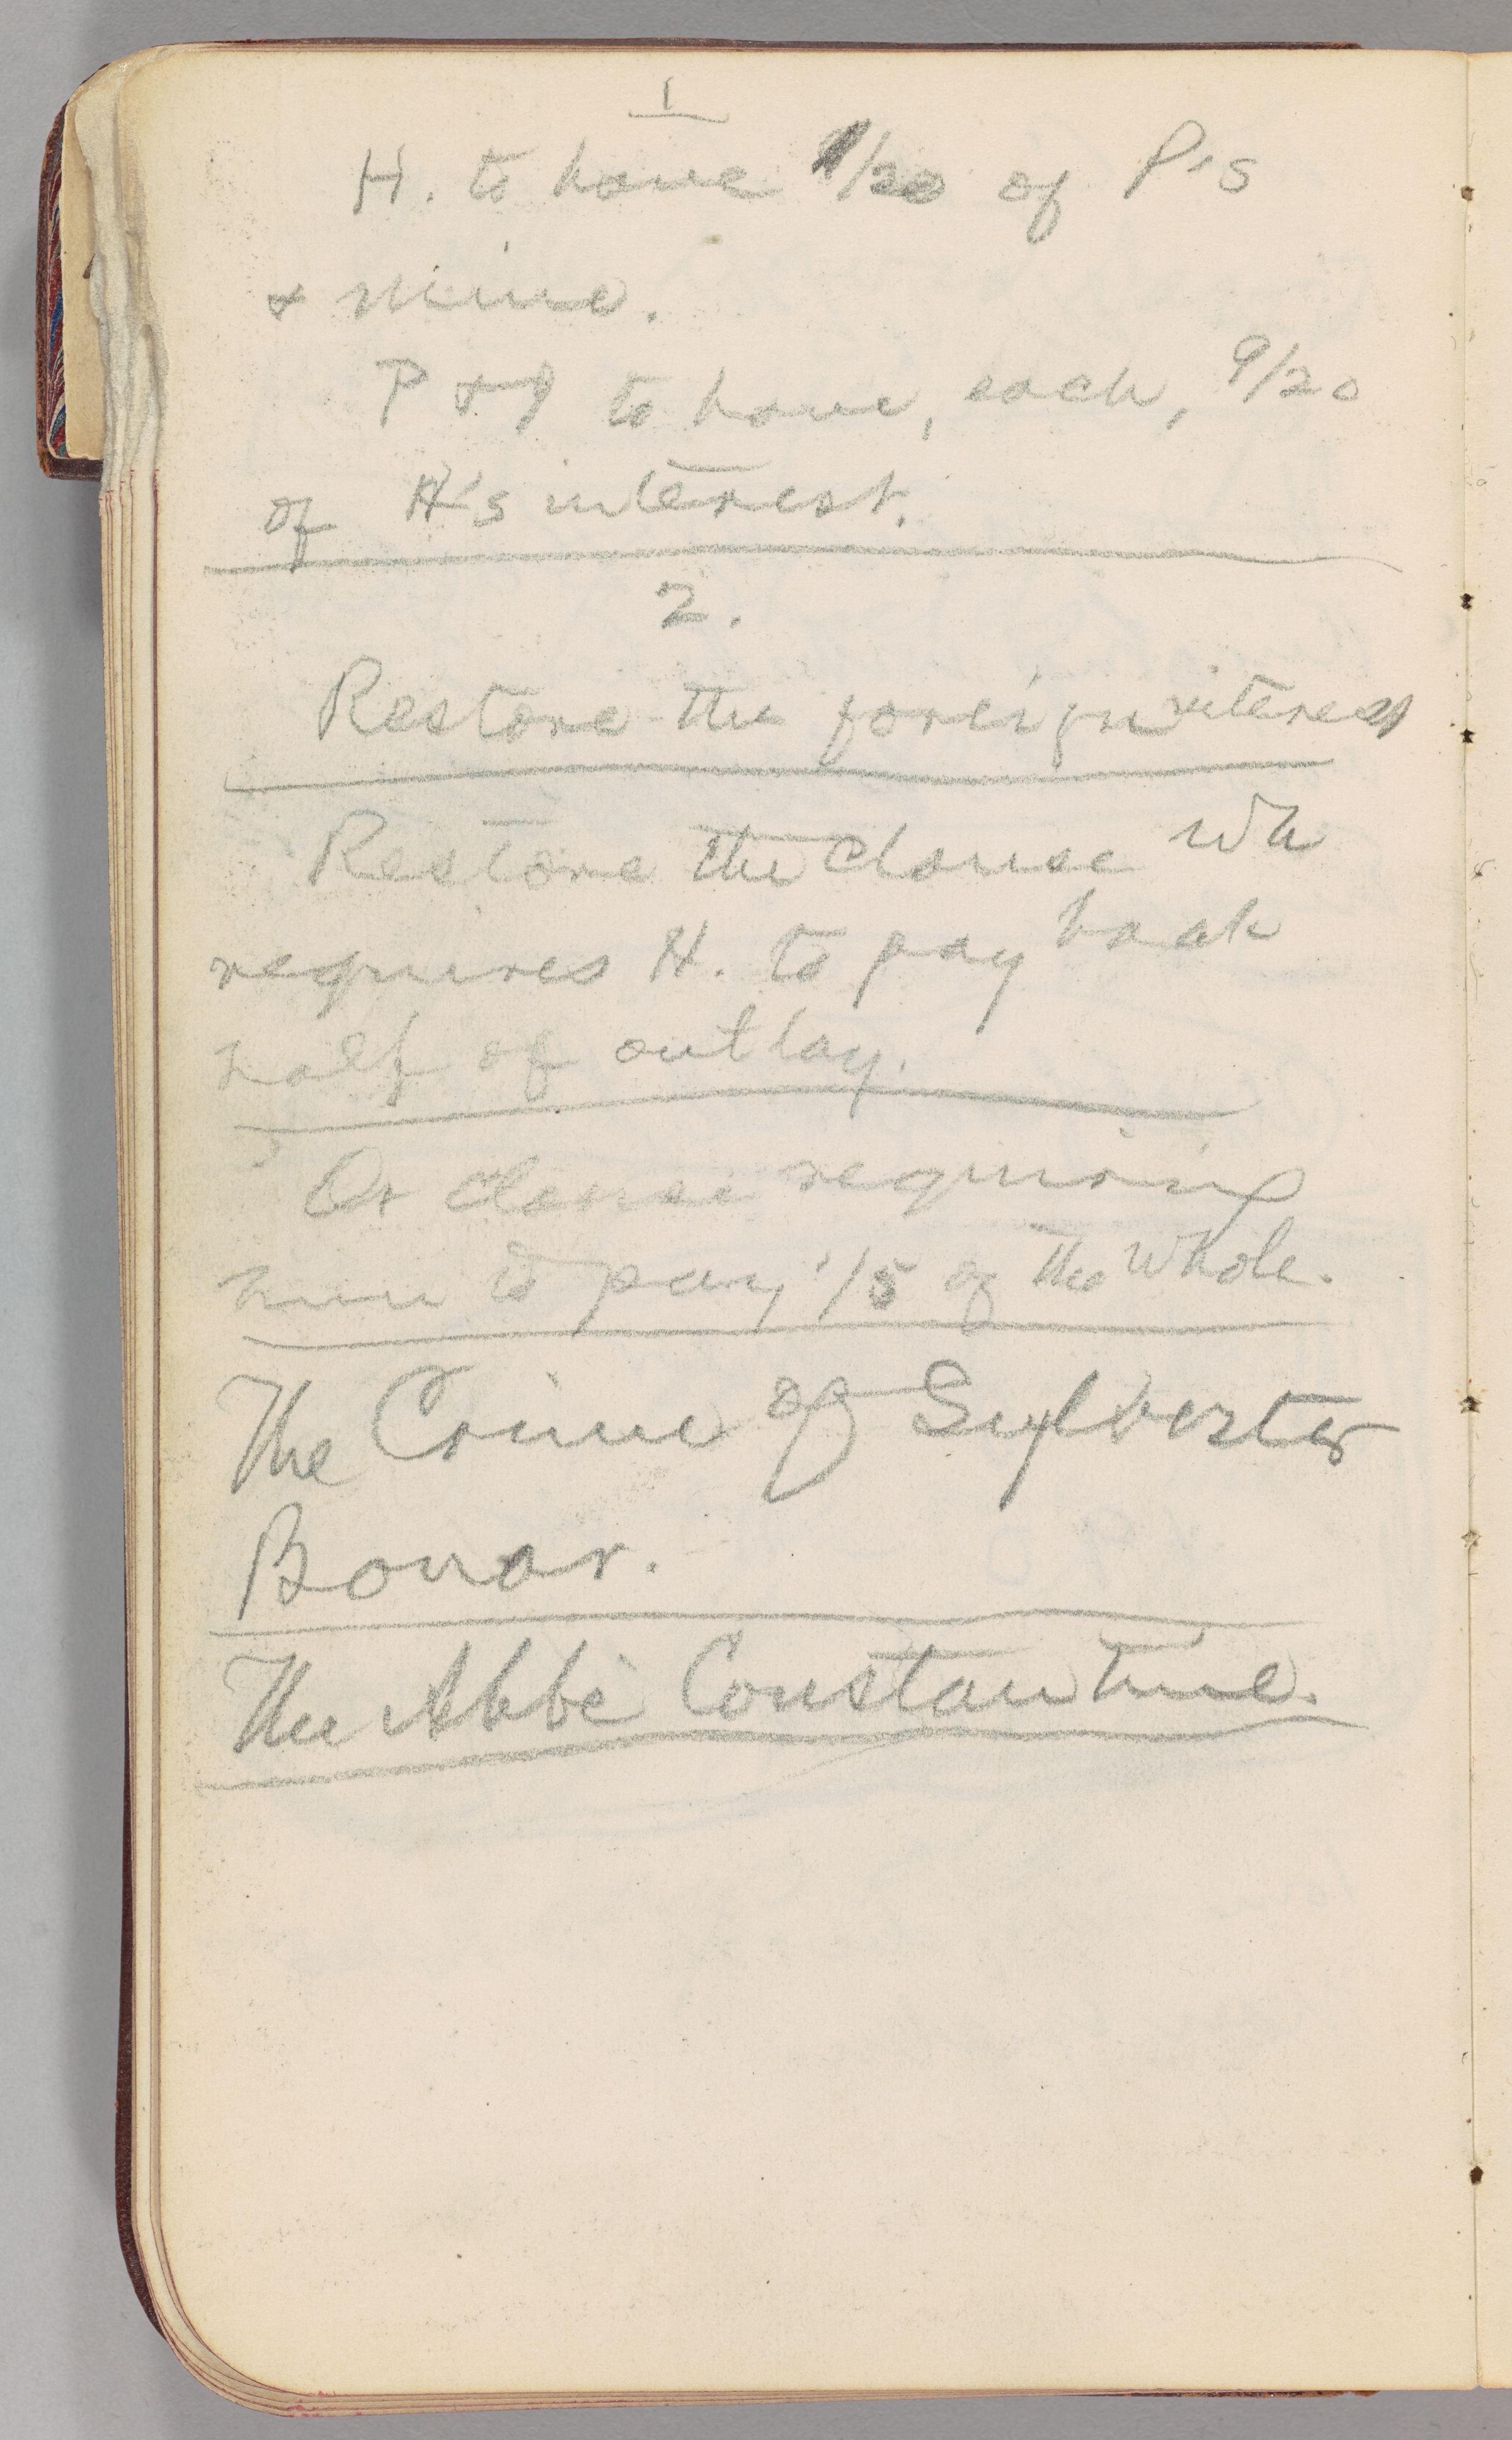 1
H. to have 1/20 of P's
& mine.
P & I to have, each, 9/20
of H's interest.
2.
Restore the foreign interest
Restore the clause wh
requires H. to pay back
half of outlay.
Or clause requiring
him to pay 1/5 of the whole.
The Crime of Sylvester
Bonar.
The Abbé Constantine.